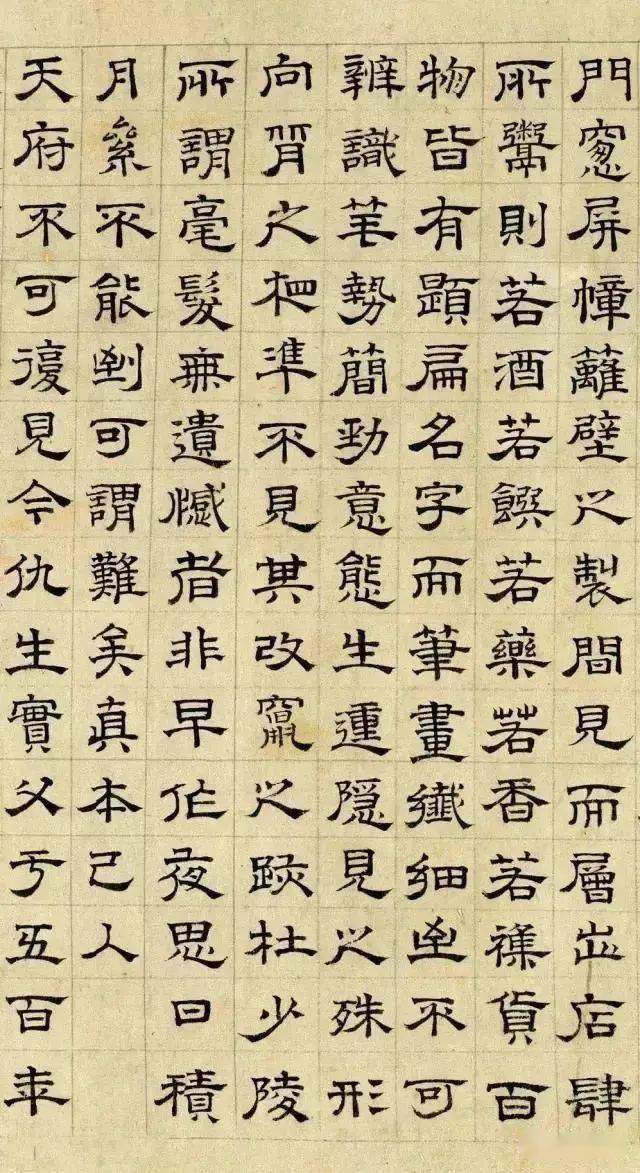 門窻屏幛籬壁之製間見而層出店肆
所鬻則若酒若饌若藥若香若雜貨百
物皆有題扁名字而筆畫纖細至不可
辨識笔勢簡勁意態生運隱見之殊形
向背之相準不見其改竄之跡杜少陵
所謂毫髮無遺憾者非早作夜思日積
月絫不能到可謂難矣真本已入
天府不可復見今仇生實父于五百年